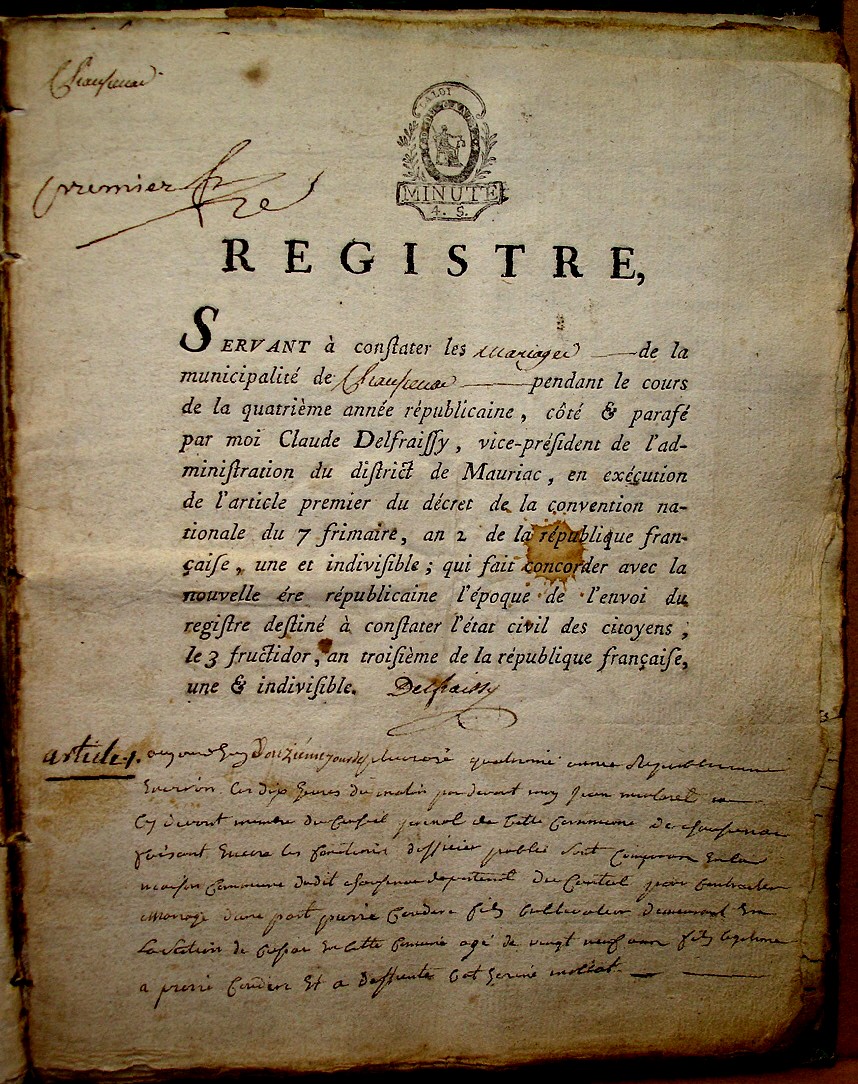 Chaussenac
LA LOI
premier
MINUTE
4. S.
REGISTRE,
SERVANT à conſtater les mariages de la
municipalité de Chaussenac pendant le cours
de la quatrième année républicaine, côté & parafé
par moi Claude Delfraiſſy, vice-préſident de l'ad-
miniſtration du diſtrict de Mauriac, en exécution
de l'article premier du décret de la convention na-
tionale du 7 frimaire, an 2 de la république fran-
çaiſe, une et indiviſible; qui fait concorder avec la
nouvelle ére républicaine l'époque de l'envoi du
regiſtre deſtiné à conſtater l'état civil des citoyens,
le 3 fructidor, an troiſième de la république françaiſe,
une & indiviſible. Delfraissy
article 1. Douzième jour de quatrième année Republicaine
environ les dix heures du matin par devant moy Jean
membre du Conseil de cette Commune de chaussenac
faisant encore les fonctions d'officier public sont
maison Commune dudit chaussenac departement du Cantal pour contracter
mariage d'une part pierre fils cultivateur demeurant
la section de en cette Commune agé de vingt neuf ans fils
a pierre et a